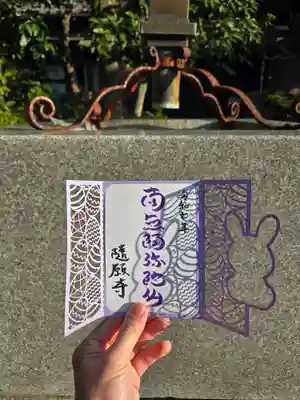 令和七年
南無阿弥陀仏
隨願寺